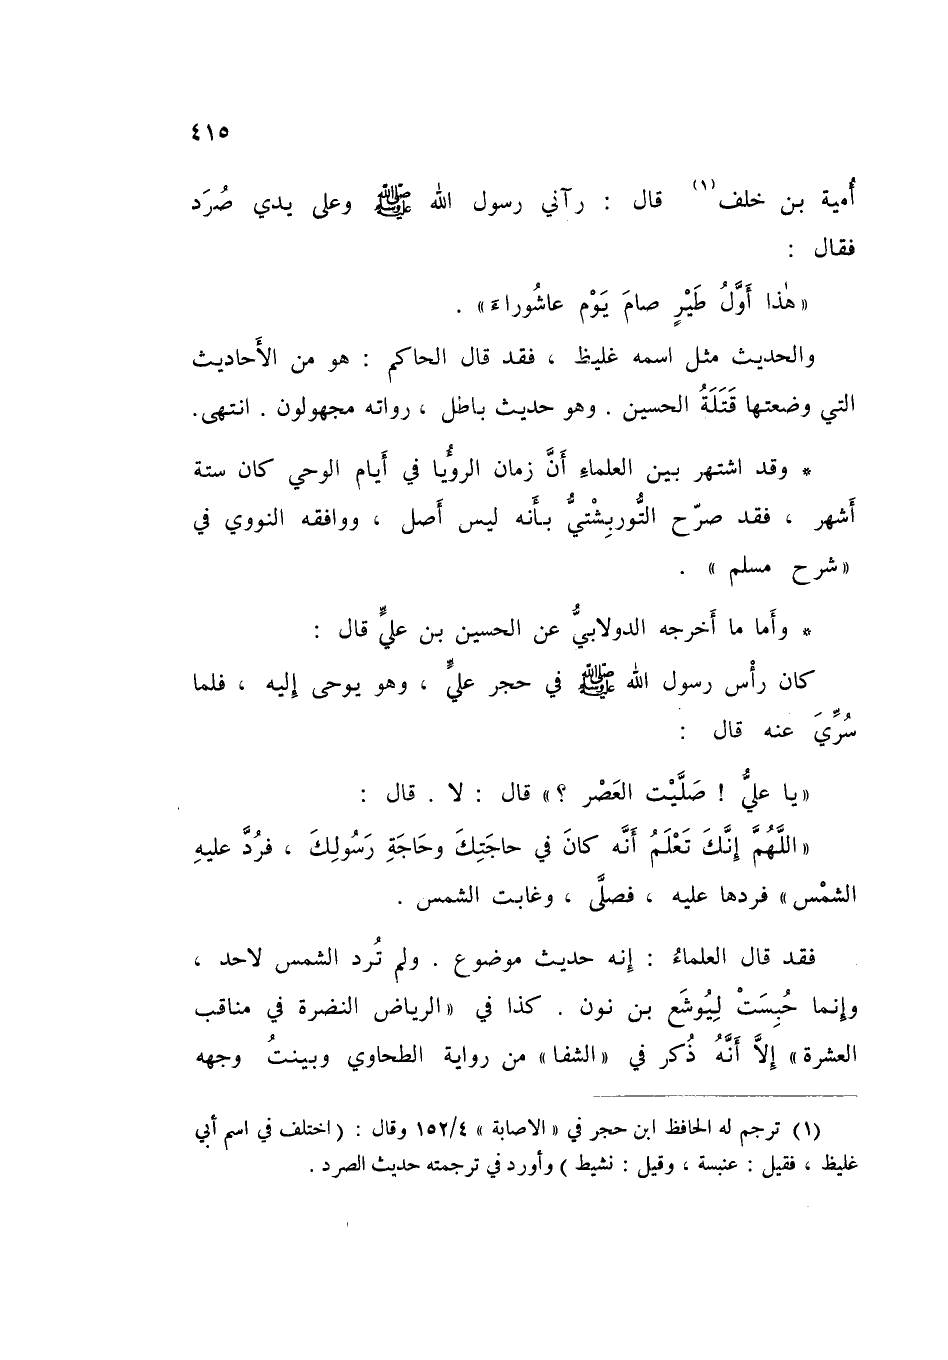 ٤١٥
أُمية بن خلف(١) قال : رآني رسول الله ﷺ وعلى يدي صُرَد
فقال :
«هٰذا أَوَّلُ طَيْرٍ صامَ يَوْم عاشُوراءَ» .
والحديث مثل اسمه غليظ ، فقد قال الحاكم : هو من الأَحاديث
التي وضعتها قَتَلَةُ الحسين . وهو حديث باطل ، رواته مجهولون . انتهى.
* وقد اشتهر بين العلماءِ أَنَّ زمان الرؤْيا في أَيام الوحي كان ستة
أَشهر ، فقد صرّح التُّوربِشْتيُّ بأَنه ليس أَصل ، ووافقه النووي في
«شرح مسلم » .
* وأَما ما أَخرجه الدولابيُّ عن الحسين بن عليٍّ قال :
كان رأْس رسول الله ﷺ في حجر عليٍّ ، وهو يوحى إليه ، فلما
سُرِّيَ عنه قال :
«يا عليُّ ! صَلَّيْت العَصْر ؟» قال : لا . قال :
«اللَّهُمَّ إِنَّكَ تَعْلَمُ أَنَّه كانَ في حاجَتِكَ وحَاجَةِ رَسُولِكَ ، فرُدَّ عليهِ
الشمْس» فردها عليه ، فصلَّى ، وغابت الشمس .
فقد قال العلماءُ : إنه حديث موضوع . ولم تُرد الشمس لاحد ،
وإنما حُبِسَتْ لِيُوشَع بن نون . كذا في «الرياض النضرة في مناقب
العشرة» إلاَّ أَنَّهُ ذُكر في «الشفا» من رواية الطحاوي وبينتُ وجهه
(١) ترجم له الحافظ ابن حجر في « الاصابة » ١٥٢/٤ وقال : ( اختلف في اسم أبي
غليظ ، فقيل : عنبسة ، وقيل : نشيط ) وأورد في ترجمته حديث الصرد .